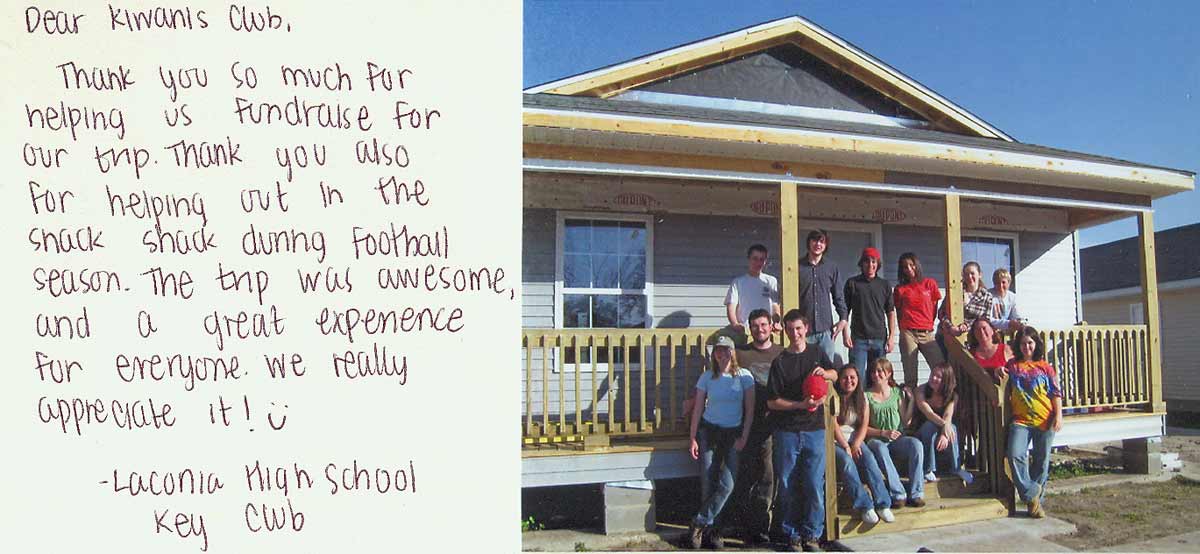 Dear Kiwanis Club,
Thank you so much for
helping us fundraise for
our trip. Thank you also
for helping out in the
snack shack during football
season. The trip was awesome,
and a great experience
for everyone. We really
appreciate it! :)
-Laconia High School
Key Club
DUPONT
DUPONT
DUPONT
DUPONT